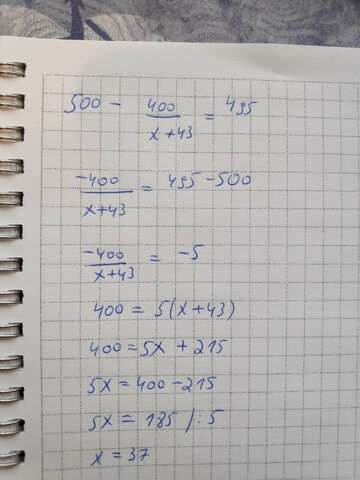 500 - 400/(x+43) = 495
-400/(x+43) = 495 - 500
-400/(x+43) = -5
400 = 5(x+43)
400 = 5x + 215
5x = 400 - 215
5x = 185 /:5
x = 37